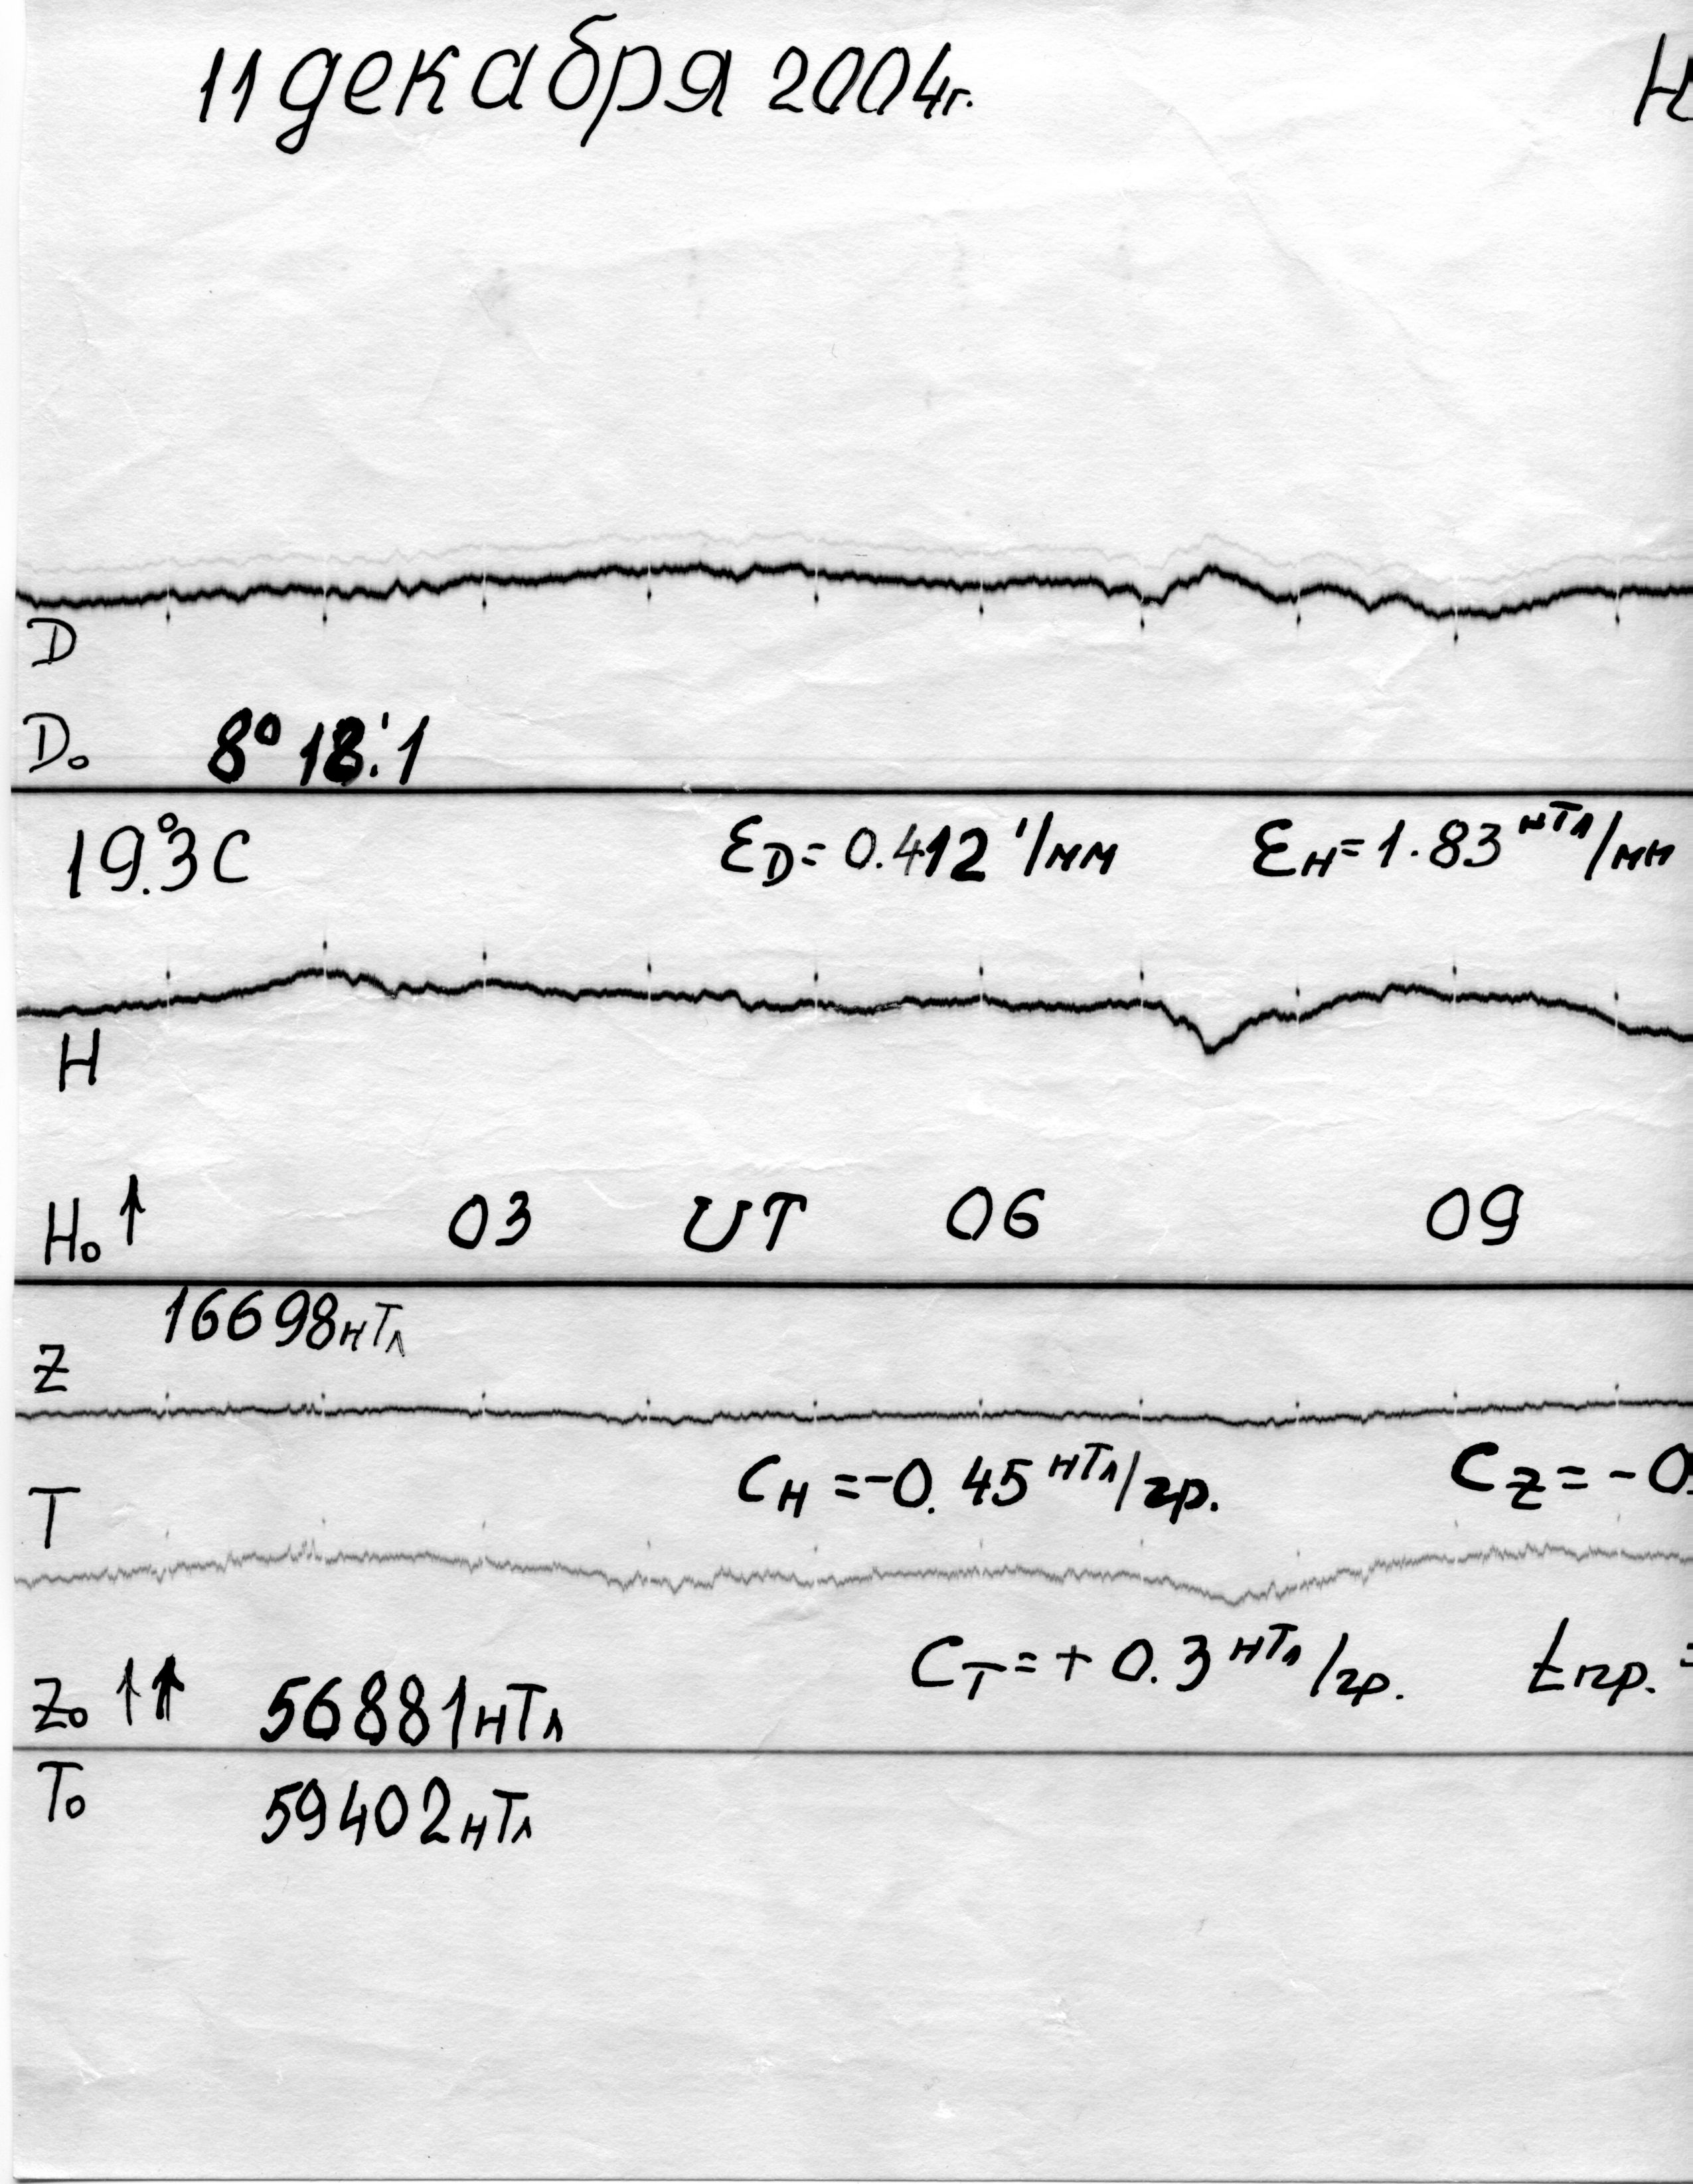 11 декабря 2004г. Н
D
D₀ 8° 18.'1
19.°3 С ƐD = 0.412 '/мм ƐH = 1.83 нТл/мм
H
H₀ ↑ 03 UT 06 09
16698 нТл
Z
CH = -0.45 нТл/гр. CZ = -0.
T
CT = + 0.3 нТл/гр. tпр. =
Z₀ ↑↑ 56881 нТл
T₀ 59402 нТл